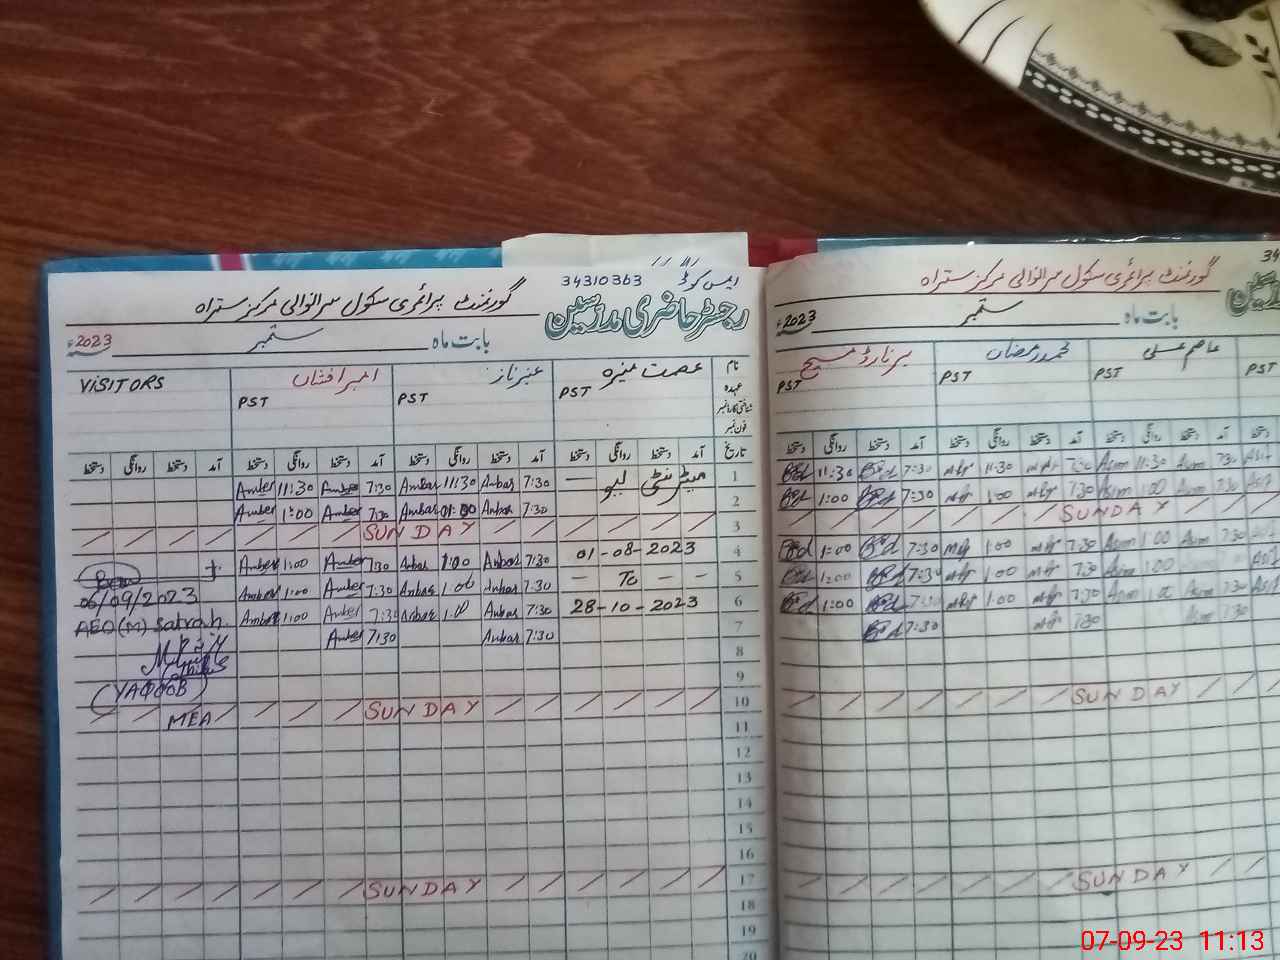 ایمس کوڈ 34310363
گورنمنٹ پرائمری سکول سرانوالی مرکز ستراہ
رجسٹر حاضری مدرسین
بابت ماہ ستمبر 2023ء
نام عصمت منیزہ عنبر ناز امبر افشاں VISITORS
عہدہ PST PST PST
شناختی کارڈ نمبر
فون نمبر
تاریخ آمد دستخط روانگی دستخط آمد دستخط روانگی دستخط آمد دستخط روانگی دستخط آمد دستخط روانگی دستخط
1 میٹرنٹی لیو — 7:30 Anbar 11:30 Anbar 7:30 Amber 11:30 Amber
2 7:30 Anbar 01:00 Anbar 7:30 Amber 1:00 Amber
3 SUNDAY
4 01-08-2023 7:30 Anbar 1:00 Anbar 7:30 Amber 1:00 Amber
5 — To — 7:30 Anbar 1:00 Anbar 7:30 Amber 1:00 Amber
06/09/2023
6 28-10-2023 7:30 Anbar 1:00 Anbar 7:30 Amber 1:00 Amber
AEO (M) Satrah
7 7:30 Anbar 7:30 Amber
8
9
(YAQOOB)
10 SUNDAY
MEA
11
12
13
14
15
16
17 SUNDAY
18
19
20
34
گورنمنٹ پرائمری سکول سرانوالی مرکز ستراہ
بابت ماہ ستمبر 2023ء
عاصم علی محمد رمضان برنارڈ مسیح
PST PST PST PST
آمد دستخط روانگی دستخط آمد دستخط روانگی دستخط آمد دستخط روانگی دستخط
7:30 Asim 11:30 Asim 7:30 11:30 7:30 11:30
7:30 Asim 1:00 Asim 7:30 1:00 7:30 1:00
SUNDAY
7:30 Asim 1:00 Asim 7:30 1:00 7:30 1:00
Asim 1:00 Asim 7:30 1:00 7:30 1:00
7:30 Asim 1:00 Asim 7:30 1:00 7:30 1:00
7:30 Asim 7:30 7:30
SUNDAY
SUNDAY
07-09-23 11:13